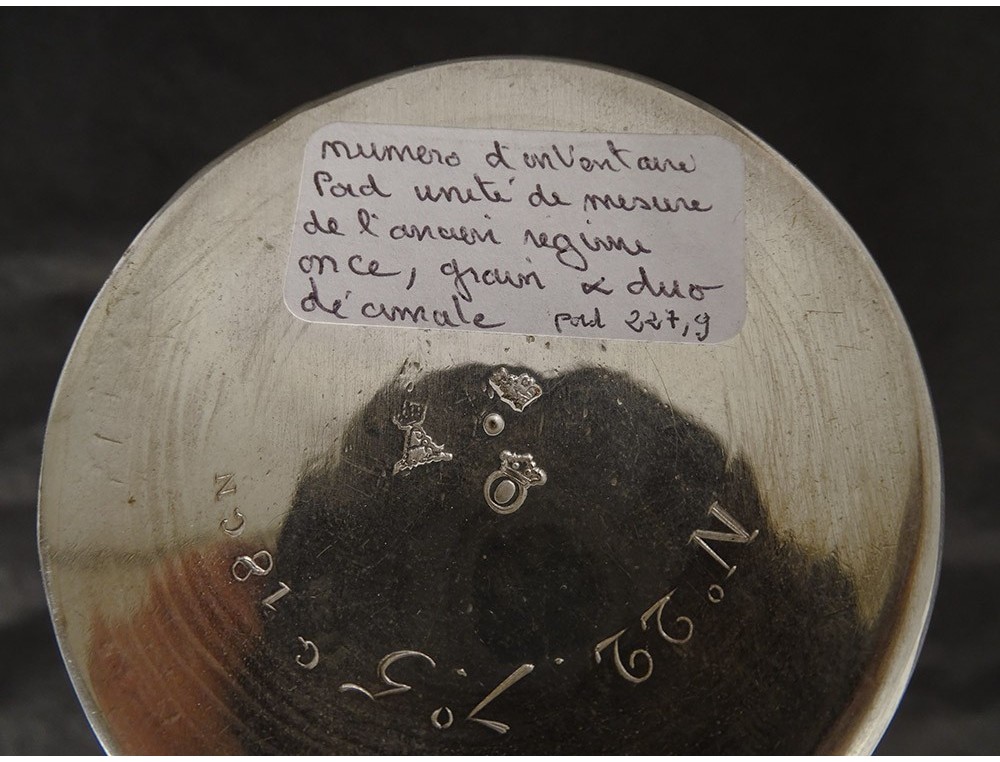 numero d'inventaire
Poid unité de mesure
de l'ancien regime
once, grain & duo
décimale poid 227,9
N° 22
7° 5 G
18 C N